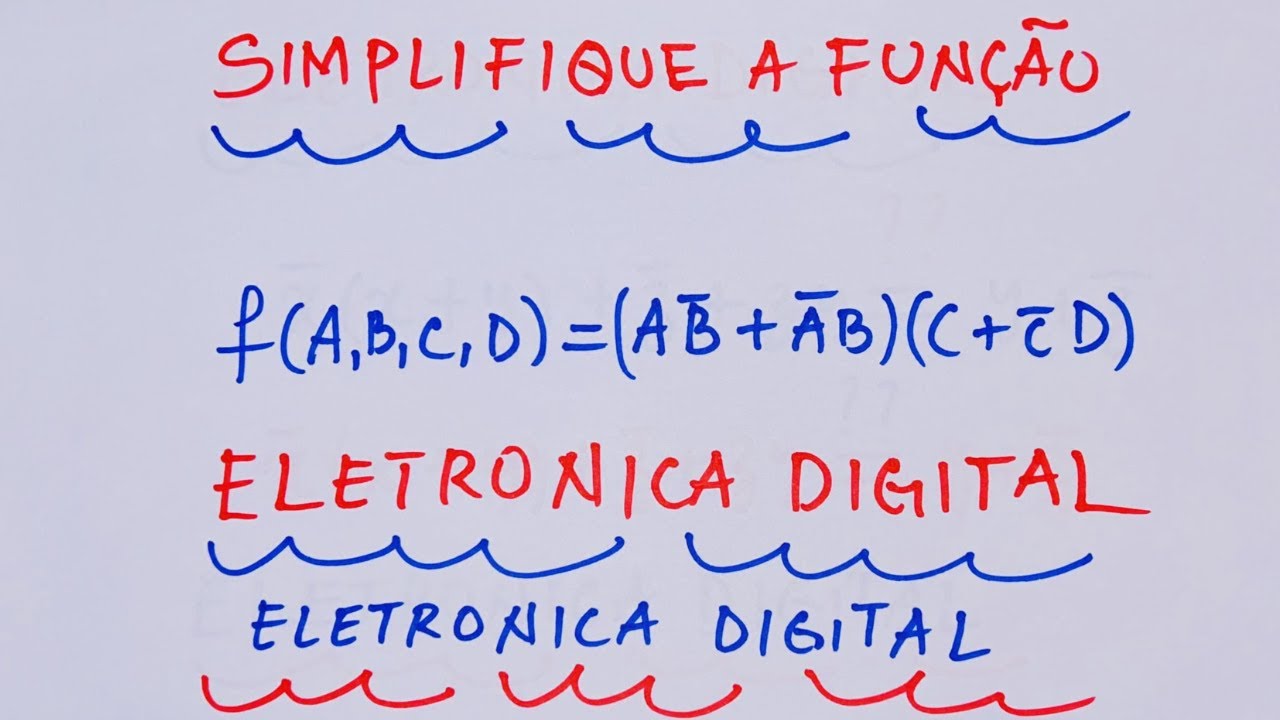 SIMPLIFIQUE A FUNÇÃO
f(A,B,C,D)=(AB̅+A̅B)(C+c̅D)
ELETRONICA DIGITAL
ELETRONICA DIGITAL